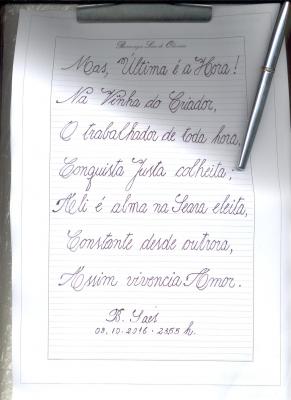 Mas, Última é a Hora!
Na Vinha do Criador,
O trabalhador de toda hora,
Conquista Justa colheita;
Ali é alma na Seara eleita,
Constante desde outrora,
Assim vivencia Amor.
08.10.2016 - 2355 h.